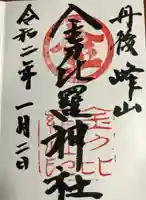 丹後 峰山
金刀比羅神社
令和二年 一月二日
金